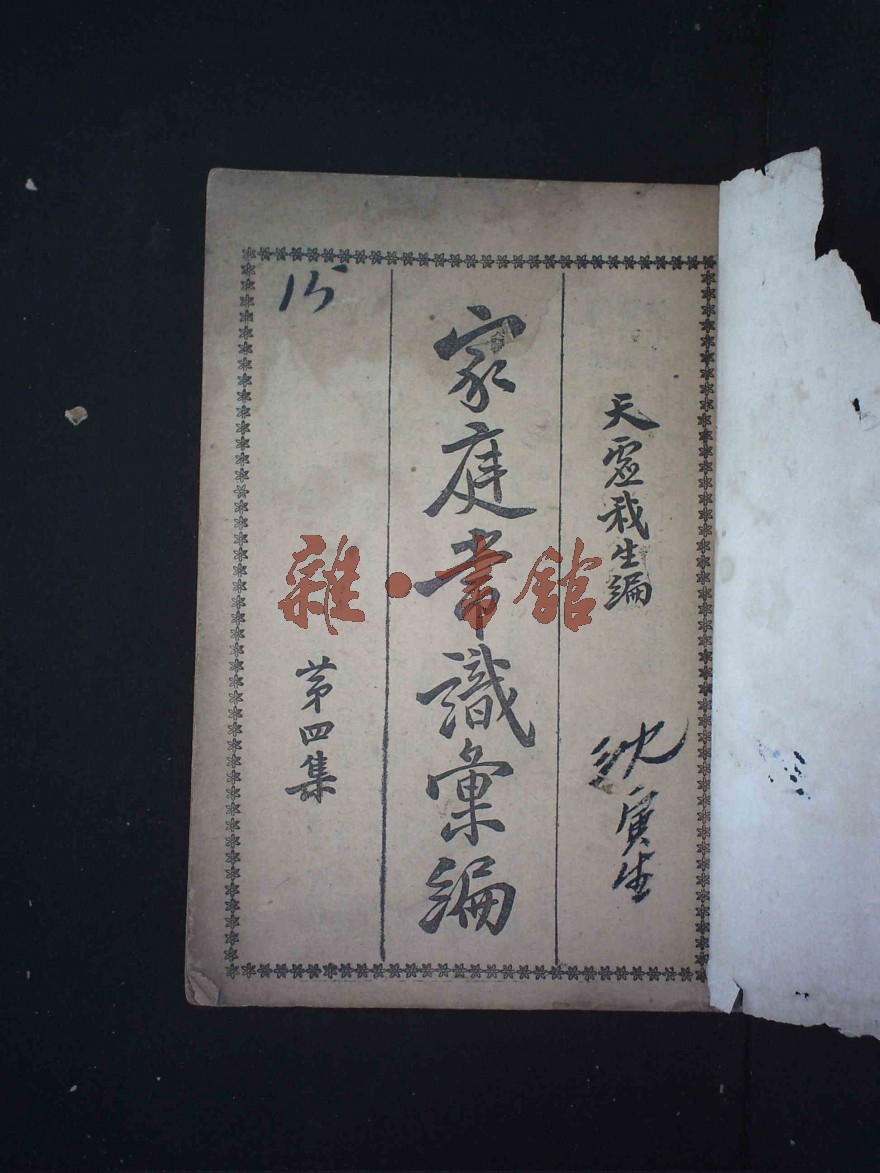 天虛我生編
沈寅生
家庭常識彙編
15
第四集
雜·書館